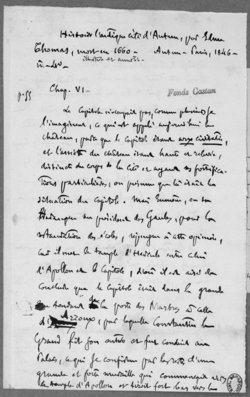 Histoire de l'antique cité d'Autun, par Edme
Thomas, mort en 1660 — Autun – Paris, 1846 –
in-4°
illustrée et annotée
Fonds Gastan
p. 55 Chap. VI –
Le Capitole n'occupait pas, comme plusieurs se
l'imaginent, ce qui est appelé aujourd'hui le
château, parce que le Capitole étant
et l'assiette du château étant haute et relevée,
distincte du corps de la cité et ayant ses fortifica-
tions particulières, on présume que là était la
situation du Capitole. Mais Eumène, en sa
harangue au président des Gaules, pour la
restauration des écoles, répugne à cette opinion,
car il met le temple d'Hercule entre celui
d'Apollon et le Capitole, d'où il est aisé de
conclure que le Capitole était dans la grande
la porte des Marbres à celle
d'Arroux, par laquelle Constantin le
Grand fit son entrée et fut conduit au
Palais, ce qui se confirme par le reste d'une
grande et forte muraille qui commençait vers
le temple d'Apollon et tirait fort bas vers la